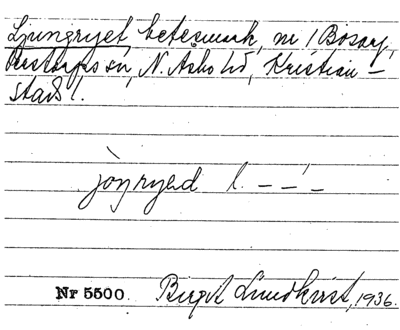 Ljungryet, betesmark, nr 1 Bosarp,
Perstorps sn, N. Åsbo hd, Kristian-
stads l.
jòŋryed l. – –́ –
Nr 5500. Birgit Lundkvist, 1936.